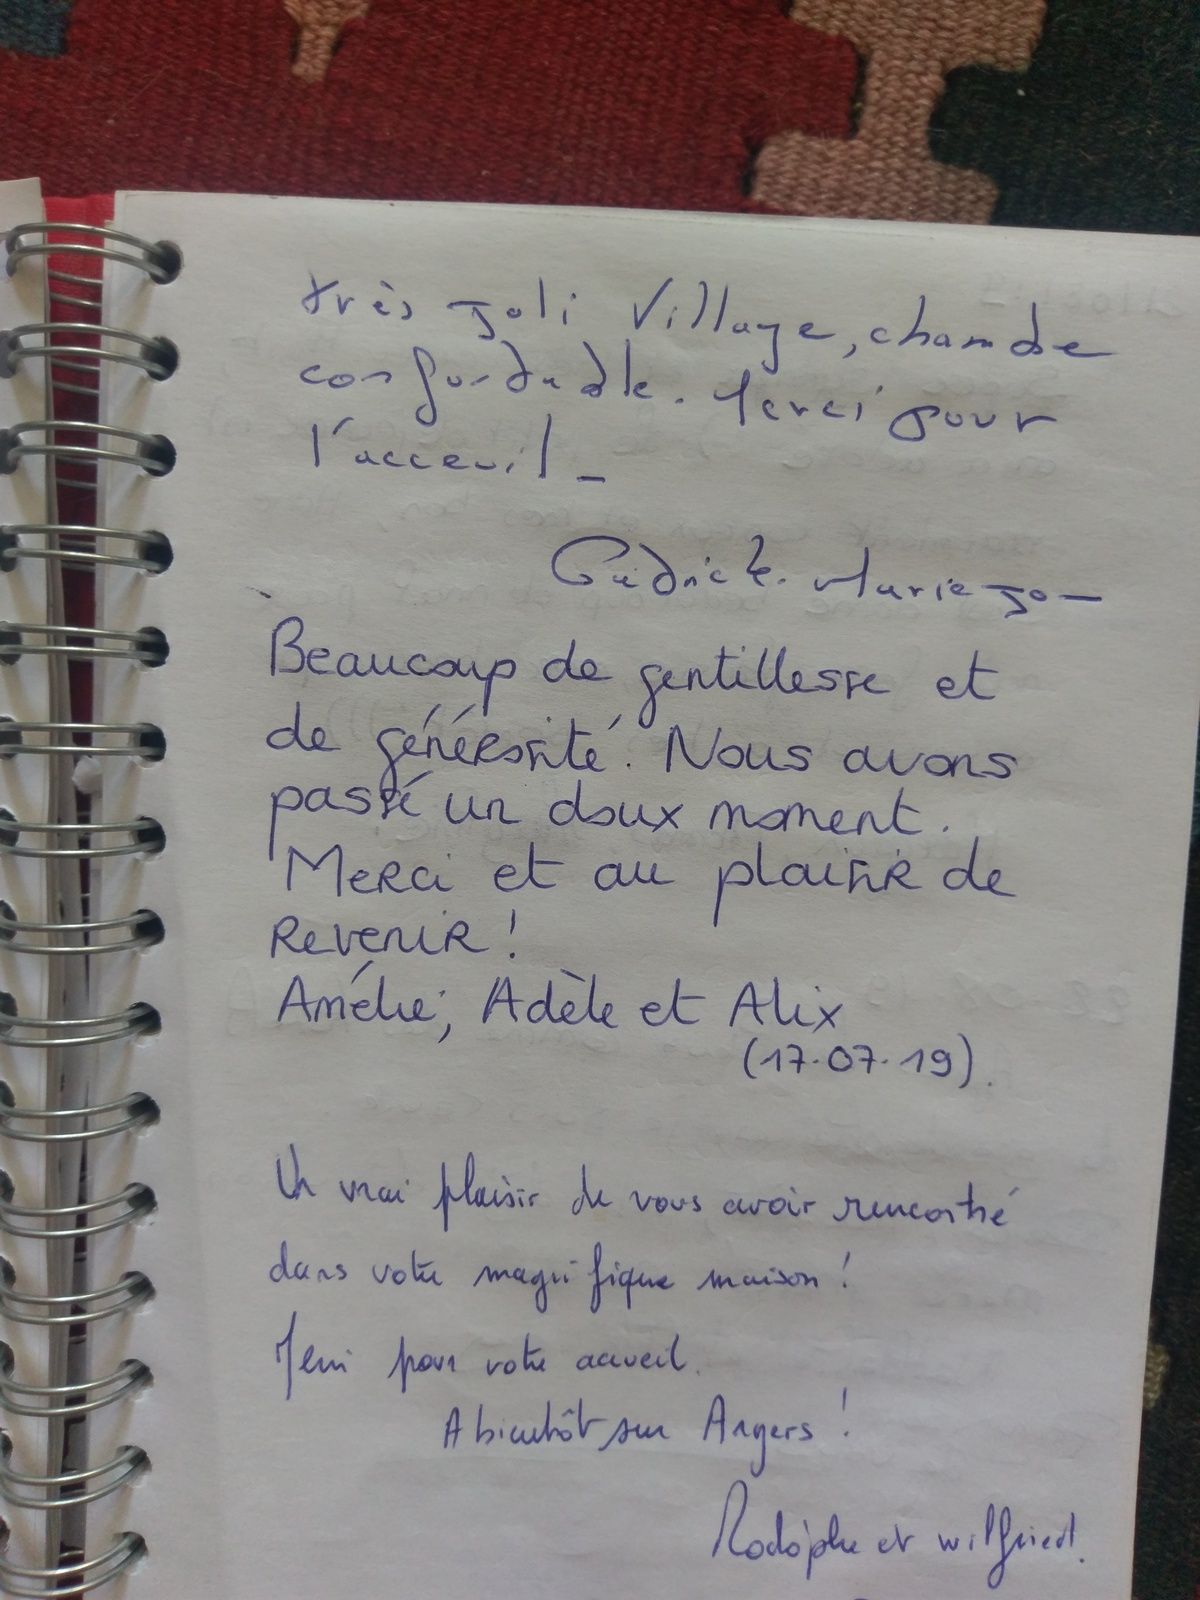 très Joli Village, chambre
confortable. Merci pour
l'acceuil_
Marie Jo_
Beaucoup de gentillesse et
de générosité. Nous avons
passé un doux moment.
Merci et au plaisir de
Revenir !
Amélie, Adèle et Alix
(17.07.19).
Un vrai plaisir de vous avoir rencontré
dans votre magnifique maison !
Merci pour votre accueil.
A bientôt sur Angers !
Rodolphe et wilfried.